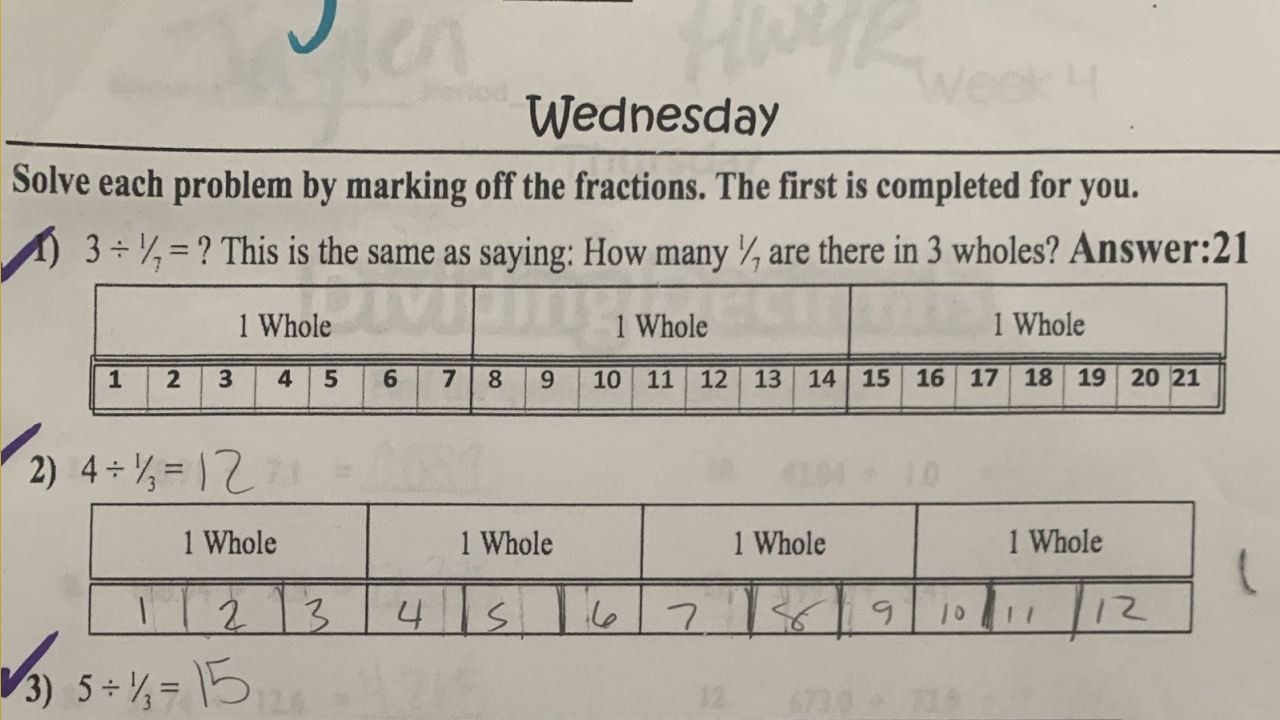 Week 4
Wednesday
Solve each problem by marking off the fractions. The first is completed for you.
1) 3 ÷ 1/7 = ? This is the same as saying: How many 1/7 are there in 3 wholes? Answer:21
1 Whole 1 Whole 1 Whole
1 2 3 4 5 6 7 8 9 10 11 12 13 14 15 16 17 18 19 20 21
2) 4 ÷ 1/3 = 12
1 Whole 1 Whole 1 Whole 1 Whole
1 2 3 4 5 6 7 8 9 10 11 12
3) 5 ÷ 1/3 = 15